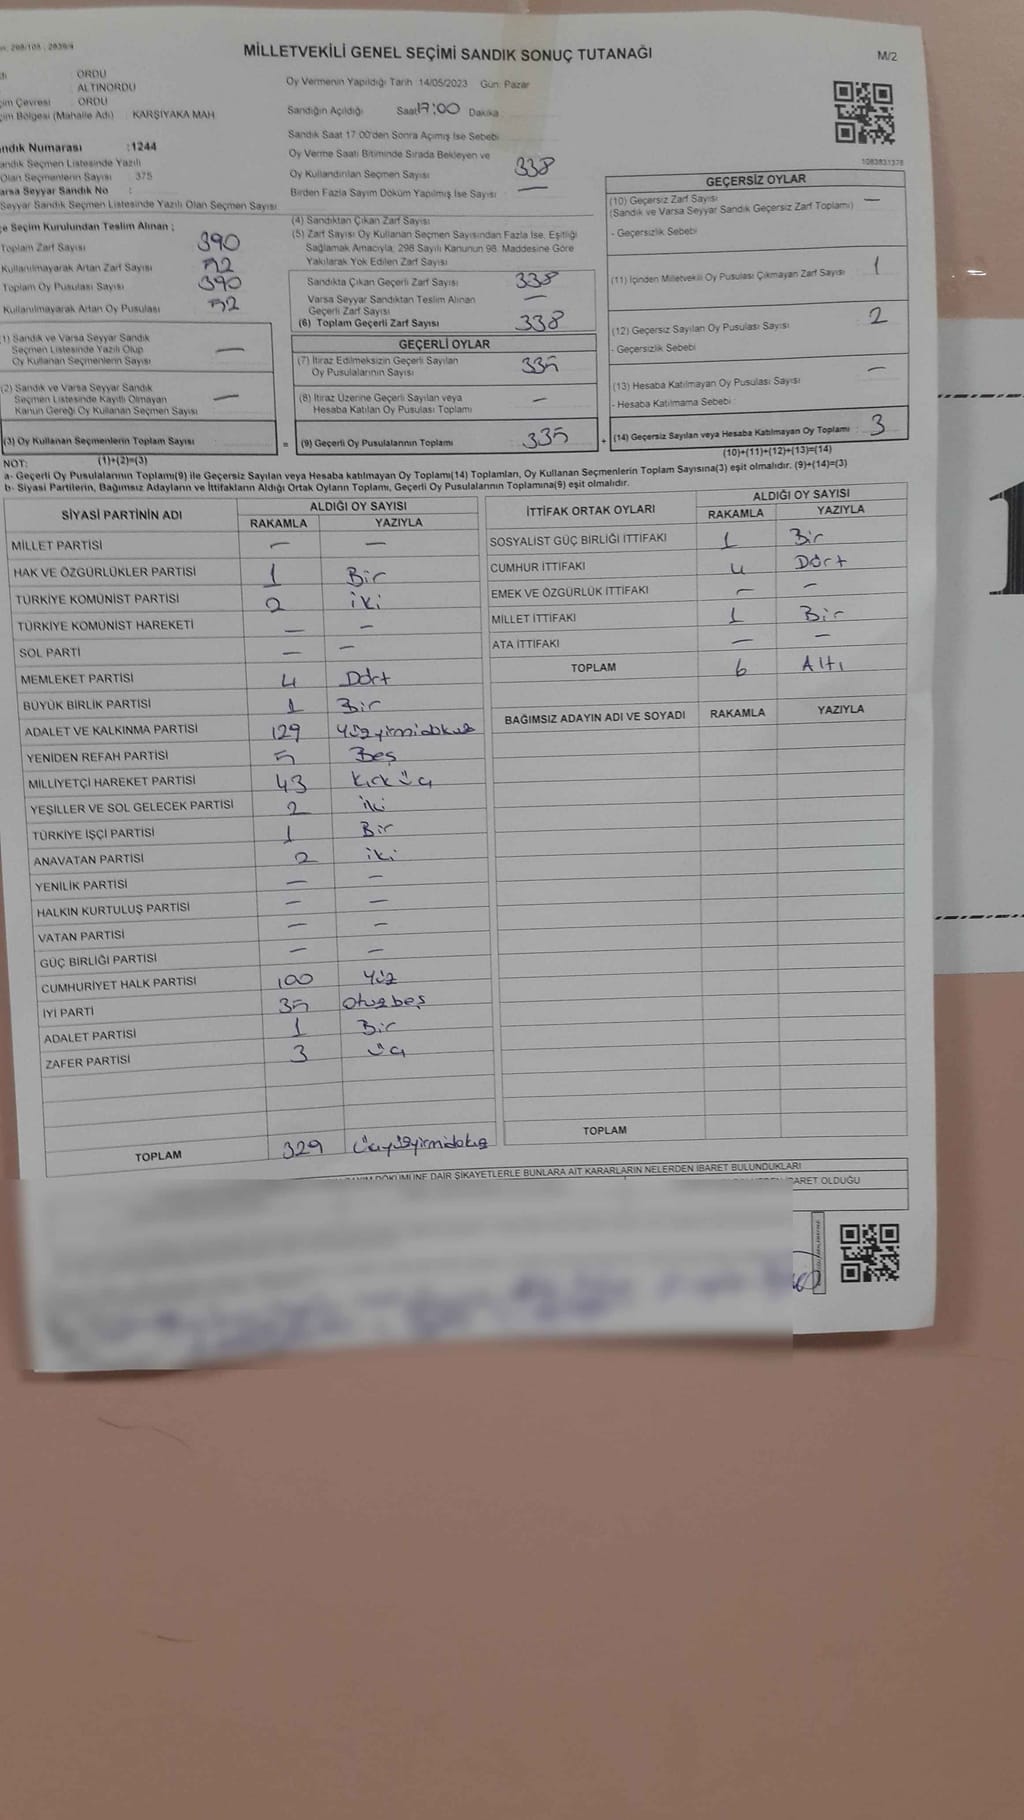 MİLLETVEKİLİ GENEL SEÇİMİ SANDIK SONUÇ TUTANAĞI
M/2
ORDU
ALTINORDU
Çevresi : ORDU
Bölgesi (Mahalle Adı) : KARŞIYAKA MAH
Sandık Numarası : 1244
Sandık Seçmen Listesinde Yazılı
Olan Seçmenlerin Sayısı : 375
Varsa Seyyar Sandık No :
Seyyar Sandık Seçmen Listesinde Yazılı Olan Seçmen Sayısı
Oy Vermenin Yapıldığı Tarih 14/05/2023 Gün: Pazar
Sandığın Açıldığı Saat 17:00 Dakika
Sandık Saat 17:00'den Sonra Açılmış İse Sebebi
Oy Verme Saati Bitiminde Sırada Bekleyen ve
Oy Kullandırılan Seçmen Sayısı 338
Birden Fazla Sayım Döküm Yapılmış İse Sayısı —
1083831378
İlçe Seçim Kurulundan Teslim Alınan ;
Toplam Zarf Sayısı 390
Kullanılmayarak Artan Zarf Sayısı 52
Toplam Oy Pusulası Sayısı 390
Kullanılmayarak Artan Oy Pusulası 52
(1) Sandık ve Varsa Seyyar Sandık
Seçmen Listesinde Yazılı Olup
Oy Kullanan Seçmenlerin Sayısı —
(2) Sandık ve Varsa Seyyar Sandık
Seçmen Listesinde Kayıtlı Olmayan
Kanun Gereği Oy Kullanan Seçmen Sayısı —
(3) Oy Kullanan Seçmenlerin Toplam Sayısı =
(1)+(2)=(3)
(4) Sandıktan Çıkan Zarf Sayısı
(5) Zarf Sayısı Oy Kullanan Seçmen Sayısından Fazla İse, Eşitliği
Sağlamak Amacıyla, 298 Sayılı Kanunun 98. Maddesine Göre
Yakılarak Yok Edilen Zarf Sayısı
Sandıkta Çıkan Geçerli Zarf Sayısı 338
Varsa Seyyar Sandıktan Teslim Alınan
Geçerli Zarf Sayısı —
(6) Toplam Geçerli Zarf Sayısı 338
GEÇERLİ OYLAR
(7) İtiraz Edilmeksizin Geçerli Sayılan
Oy Pusulalarının Sayısı 335
(8) İtiraz Üzerine Geçerli Sayılan veya
Hesaba Katılan Oy Pusulası Toplamı —
(9) Geçerli Oy Pusulalarının Toplamı 335 +
GEÇERSİZ OYLAR
(10) Geçersiz Zarf Sayısı —
(Sandık ve Varsa Seyyar Sandık Geçersiz Zarf Toplamı)
- Geçersizlik Sebebi
(11) İçinden Milletvekili Oy Pusulası Çıkmayan Zarf Sayısı 1
(12) Geçersiz Sayılan Oy Pusulası Sayısı 2
- Geçersizlik Sebebi
(13) Hesaba Katılmayan Oy Pusulası Sayısı —
- Hesaba Katılmama Sebebi :
(14) Geçersiz Sayılan veya Hesaba Katılmayan Oy Toplamı : 3
(10)+(11)+(12)+(13)=(14)
NOT:
a- Geçerli Oy Pusulalarının Toplamı(9) ile Geçersiz Sayılan veya Hesaba katılmayan Oy Toplamı(14) Toplamları, Oy Kullanan Seçmenlerin Toplam Sayısına(3) eşit olmalıdır. (9)+(14)=(3)
b- Siyasi Partilerin, Bağımsız Adayların ve İttifakların Aldığı Ortak Oyların Toplamı, Geçerli Oy Pusulalarının Toplamına(9) eşit olmalıdır.
SİYASİ PARTİNİN ADI ALDIĞI OY SAYISI
RAKAMLA YAZIYLA
MİLLET PARTİSİ — —
HAK VE ÖZGÜRLÜKLER PARTİSİ 1 Bir
TÜRKİYE KOMÜNİST PARTİSİ 2 iki
TÜRKİYE KOMÜNİST HAREKETİ — —
SOL PARTİ — —
MEMLEKET PARTİSİ 4 Dört
BÜYÜK BİRLİK PARTİSİ 1 Bir
ADALET VE KALKINMA PARTİSİ 129 Yüzyirmidokuz
YENİDEN REFAH PARTİSİ 5 Beş
MİLLİYETÇİ HAREKET PARTİSİ 43 Kırküç
YEŞİLLER VE SOL GELECEK PARTİSİ 2 iki
TÜRKİYE İŞÇİ PARTİSİ 1 Bir
ANAVATAN PARTİSİ 2 iki
YENİLİK PARTİSİ — —
HALKIN KURTULUŞ PARTİSİ — —
VATAN PARTİSİ — —
GÜÇ BİRLİĞİ PARTİSİ — —
CUMHURİYET HALK PARTİSİ 100 Yüz
İYİ PARTİ 35 Otuzbeş
ADALET PARTİSİ 1 Bir
ZAFER PARTİSİ 3 üç
TOPLAM 329 Üçyüzyirmidokuz
İTTİFAK ORTAK OYLARI ALDIĞI OY SAYISI
RAKAMLA YAZIYLA
SOSYALİST GÜÇ BİRLİĞİ İTTİFAKI 1 Bir
CUMHUR İTTİFAKI 4 Dört
EMEK VE ÖZGÜRLÜK İTTİFAKI — —
MİLLET İTTİFAKI 1 Bir
ATA İTTİFAKI — —
TOPLAM 6 Altı
BAĞIMSIZ ADAYIN ADI VE SOYADI RAKAMLA YAZIYLA
TOPLAM
DÖKÜMÜNE DAİR ŞİKAYETLERLE BUNLARA AİT KARARLARIN NELERDEN İBARET BULUNDUKLARI
İBARET OLDUĞU
1